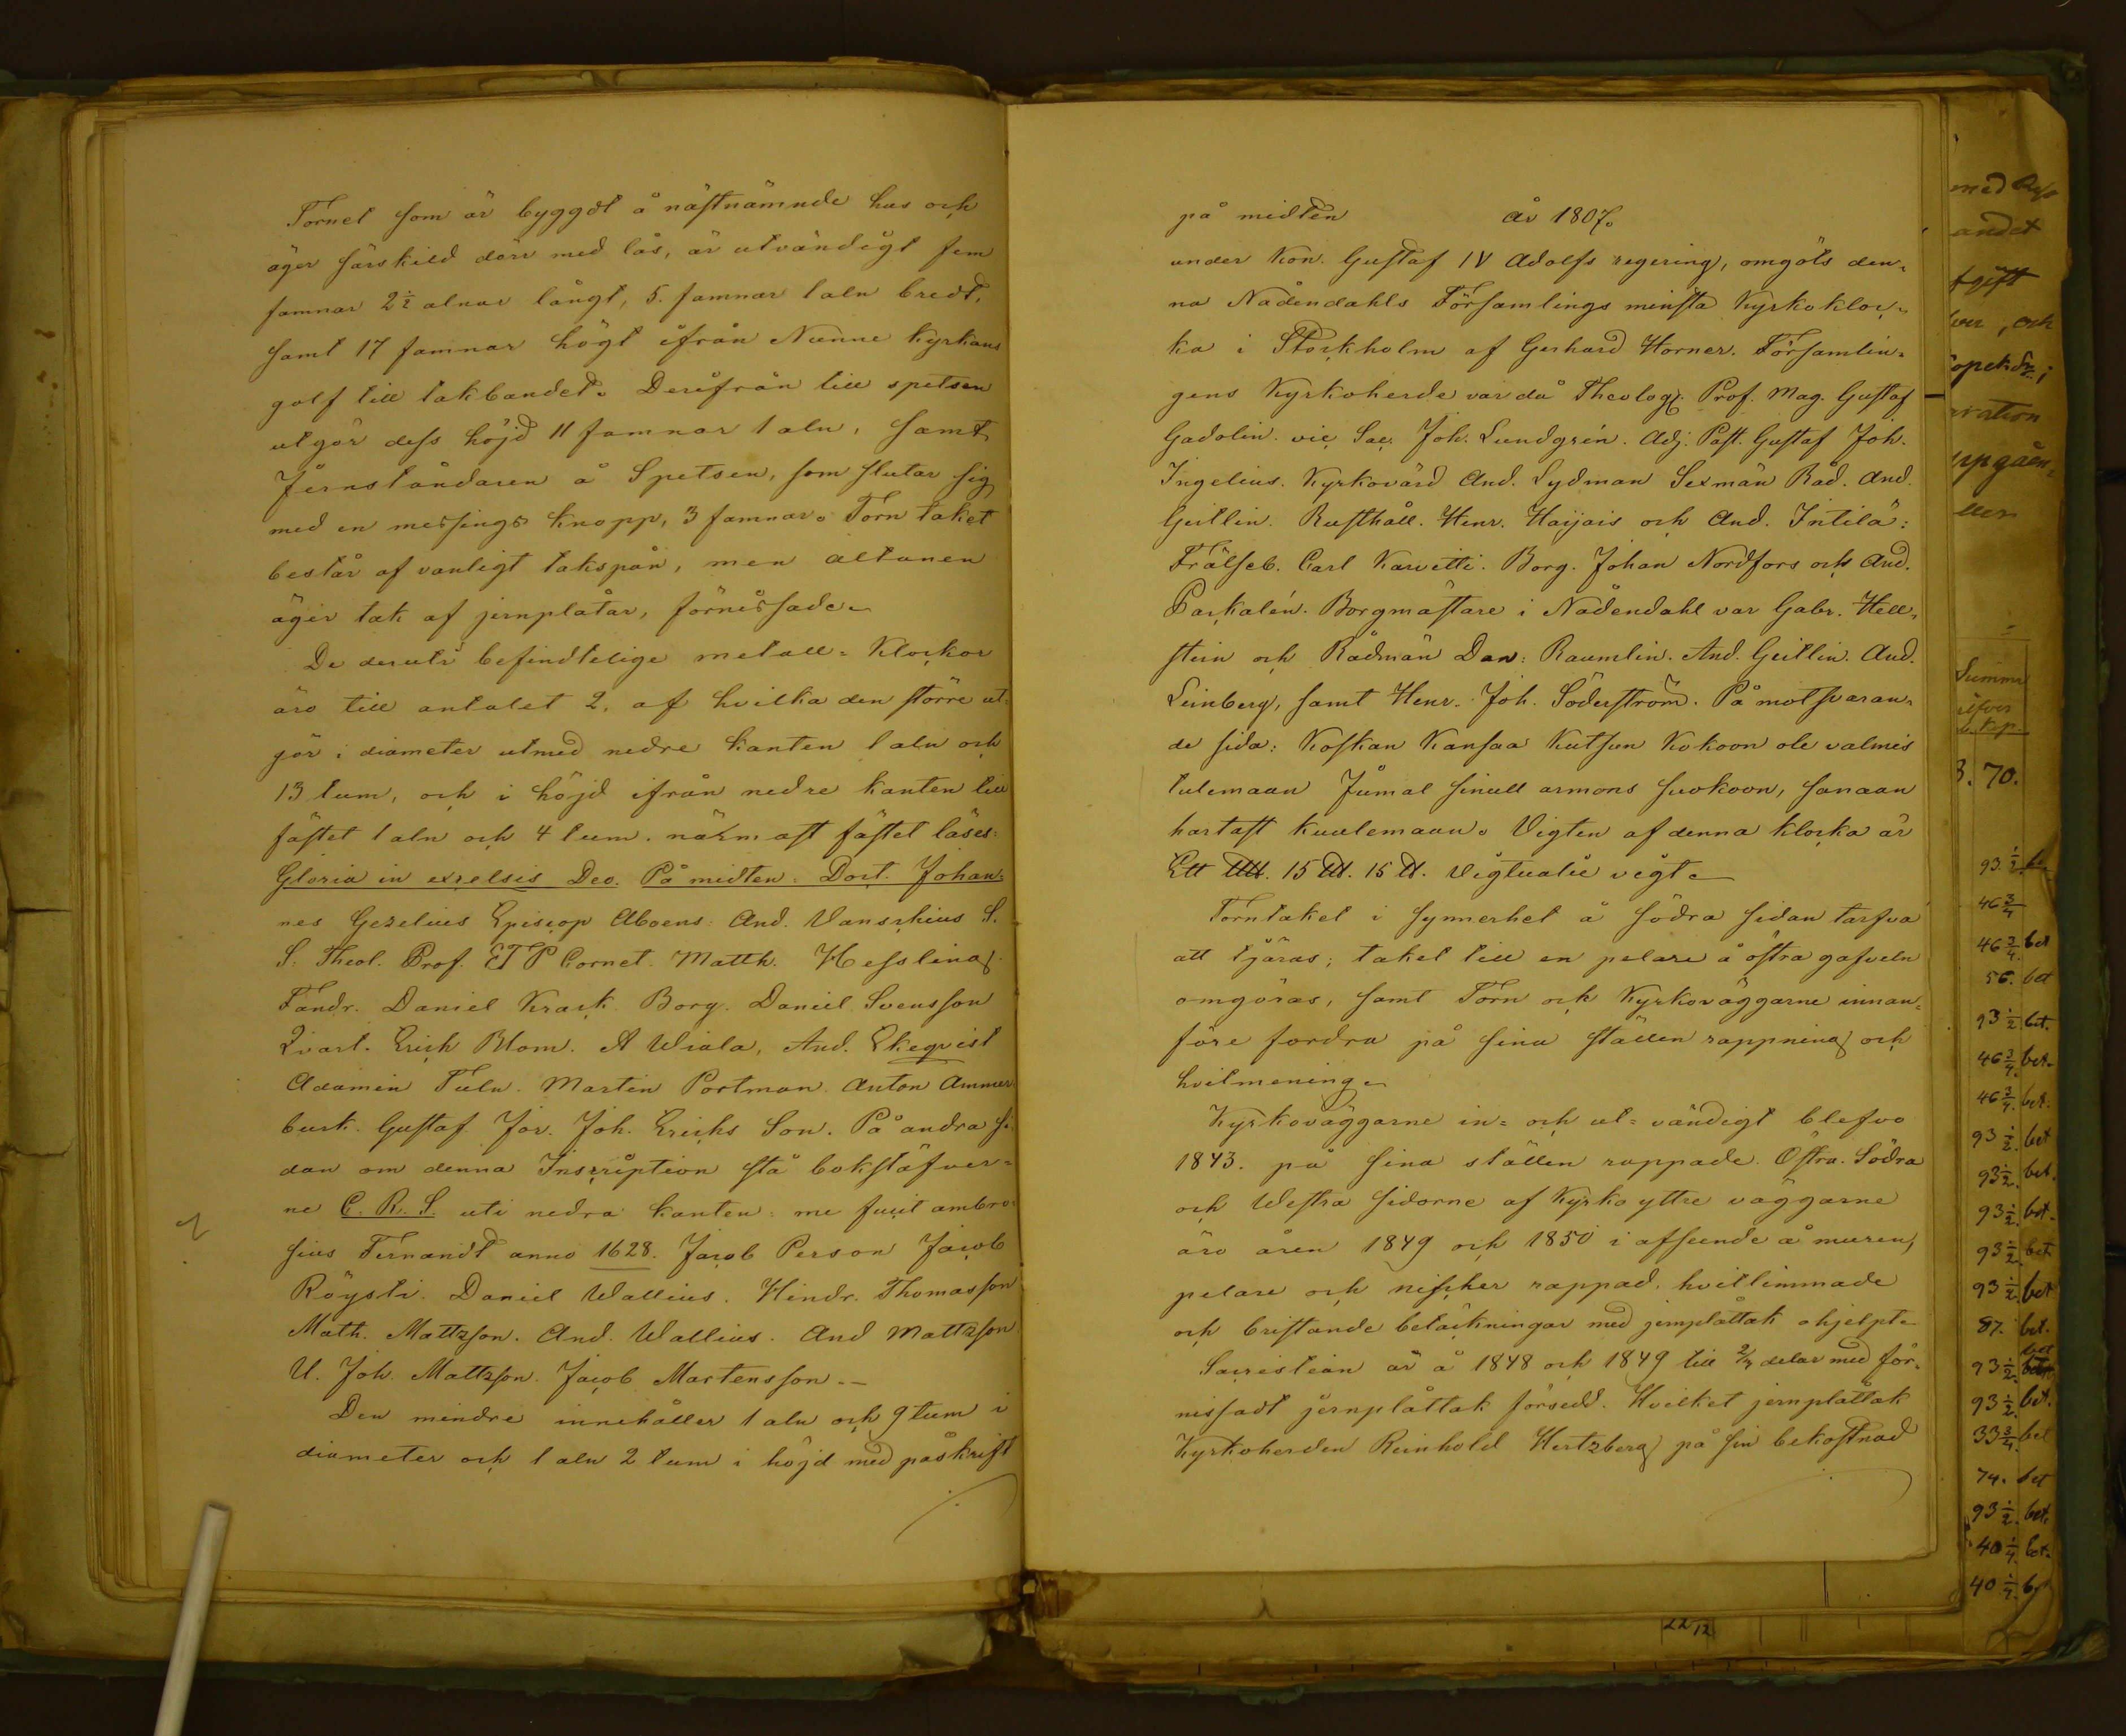 Tornet som är byggdt å nästnämnde hus och
äger särskild dörr med lås, är utvändigt fem
famnar 2½ alnar långt, 5. famnar 1 aln bredt,
samt 17 famnar högt ifrån Nunne kyrkans
golf till takbandet. Derifrån till spetsen
utgör dess höjd 11 famnar 1 aln, samt
Jernståndaren å Spetsen, som slutar sig
med en messings knopp, 3 famnar. Torn taket
består af vanligt takspån, men altanen
äger tak af jernplåtar, förnissade.
De deruti befindtelige metall-Klockor
äro till antalet 2, af hvilka den större ut-
gör i diameter utmed nedre kanten 1 aln och
13 tum, och i höjd ifrån nedre kanten till
fästet 1 aln och 4 tum. närmast fästet läses:
Gloria in excelsis Deo. På midten. Doct. Johan-
nes Gezelius Episcop Aboens. And. Wanschius S.
S. Theol. Prof. ETP Cornet. Matth. Hessling.
Fändr. Daniel Krack Borg. Daniel Svensson
Qvart. Erich Blom. A Wiala, And. Ekeqvist
Adamin Tuln. Martin Portman Anton Ammer
burk. Gustaf Jör. Joh. Erichs Son. På andra si-
dan om denna Inscription stå bokstäfver-
ne C. R. S. uti nedra kanten: me fecit ambro-
sius Fernandt anno 1628. Jacob Person Jacob
Röysti. Daniel Wallius. Hindr. Thomasson
Math. Mattzson. And. Wallius. And Mattzson
U. Joh. Mattzson. Jacob Martensson.—
Den mindre innehåller 1 aln och 9 tum i
diameter och 1 aln 2 tum i höjd med påskrift
på midten år 1807.
under Kon. Gustaf IV Adolfs regering, omgöts den-
na Nådendahls Församlings minsta Kyrkokloc-
ka i Stockholm af Gerhard Horner. Församlin-
gens Kyrkoherde var då Theolog. Prof. Mag. Gustaf
Gadolin. vic Sac. Joh. Lundgrén. Adj. Past. Gustaf Joh.
Ingelius. Kyrkovärd And. Lydman Sexmän Råd. And.
Geitlin. Rusthåll. Henr. Haijais och And. Intilä:
Frälseb. Carl Karvetti. Borg. Johan Nordfors och And.
Parkalén. Borgmästare i Nådendahl var Gabr. Hell-
stein och Rådmän Dan: Raumlin. And. Geitlin. And.
Leinberg, samt Henr. Joh. Söderström. På motsvaran-
de sida: Koskan Kansaa Kutsun Kokoon ole valmis
tulemaan Jumal sinull armons suokoon, sanaan
hartast kuulemaan. Vigten af denna klocka är
Ett 15 15 Vigtualie vigt.
Torntaket i synnerhet å södra sidan tarfva
att tjäras; taket till en pelare å östra gafveln
omgöras, samt Torn och Kyrkoväggarne innan-
före fordra på sina ställen rappning och
hvitmening.
Kyrkoväggarne in- och ut-vändigt blefvo
1843. på sina ställen rappade. Östra. Södra
och Westra sidorne af Kyrko yttre väggarne
äro åren 1849 och 1850 i afseende å muren,
pelare och nischer rappad. hvitlimmade
och bristande betäckningar med jernplåttak ahjelpte
Sacristian är å 1848 och 1849 till 2/4 delar med för-
nissadt jernplåttak försedd. Hvilket jernplåttak
Kyrkoherden Reinhold Hertzberg på sin bekostnad
med
andet
och
ration
uppgåen-
Summa
kop.
3. 70.
93½
46¾
46¾ bet
56. bet
93½ bet.
46¾ bet.
46¾ bet.
93½ bet
93½ bet.
93½ bet.
93½ bet
93½ bet
87. bet.
93½ bet
93½ bet.
33¾ bet
74. bet
93½ bet.
40¼ bet.
40¼
22/12